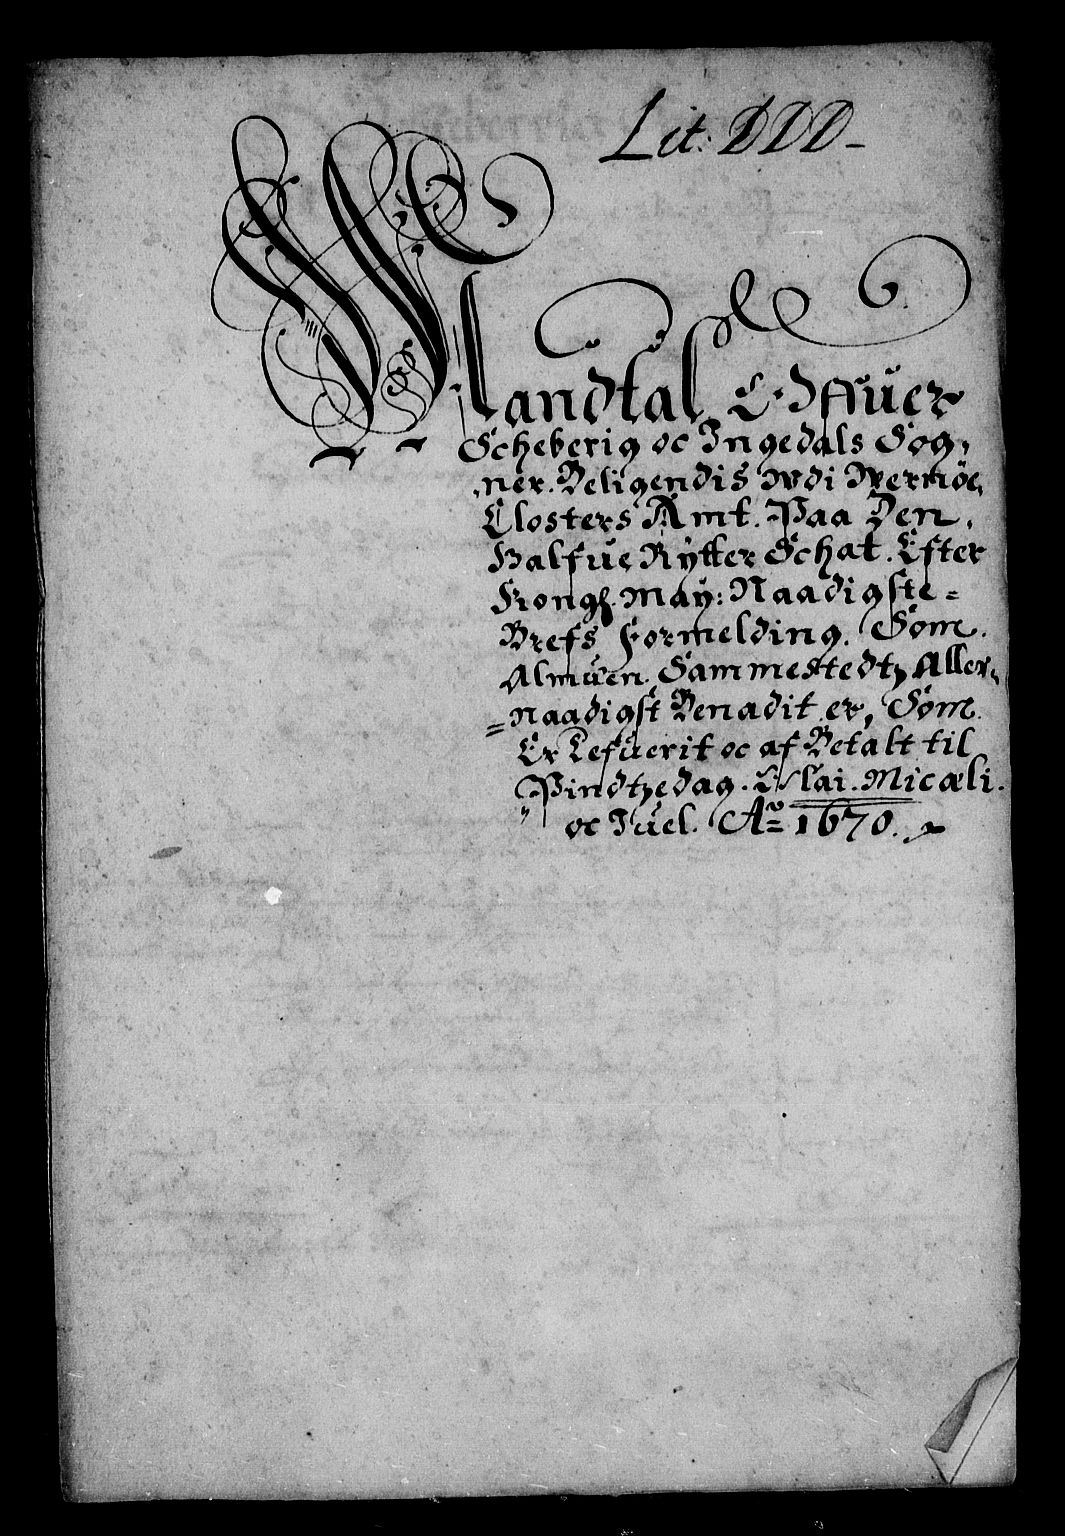 Lit: DDD
Mandtal Offuer
Scheberig oc Ingedals Sog,
ner. Beligendis udi Wermöe
Closters Amt. Paa Den,
Halfue Rytter Schat. Efter
Kongl. May: Naadigste=
Brefs Formelding. Som.
Almuen. Sammestedtz Aller,
=naadigst Benadit er, Som
Er Lefuerit oc af Betalt til
Pindtzedag. Olai. Micæli.
oc Juel. Ao 1670.